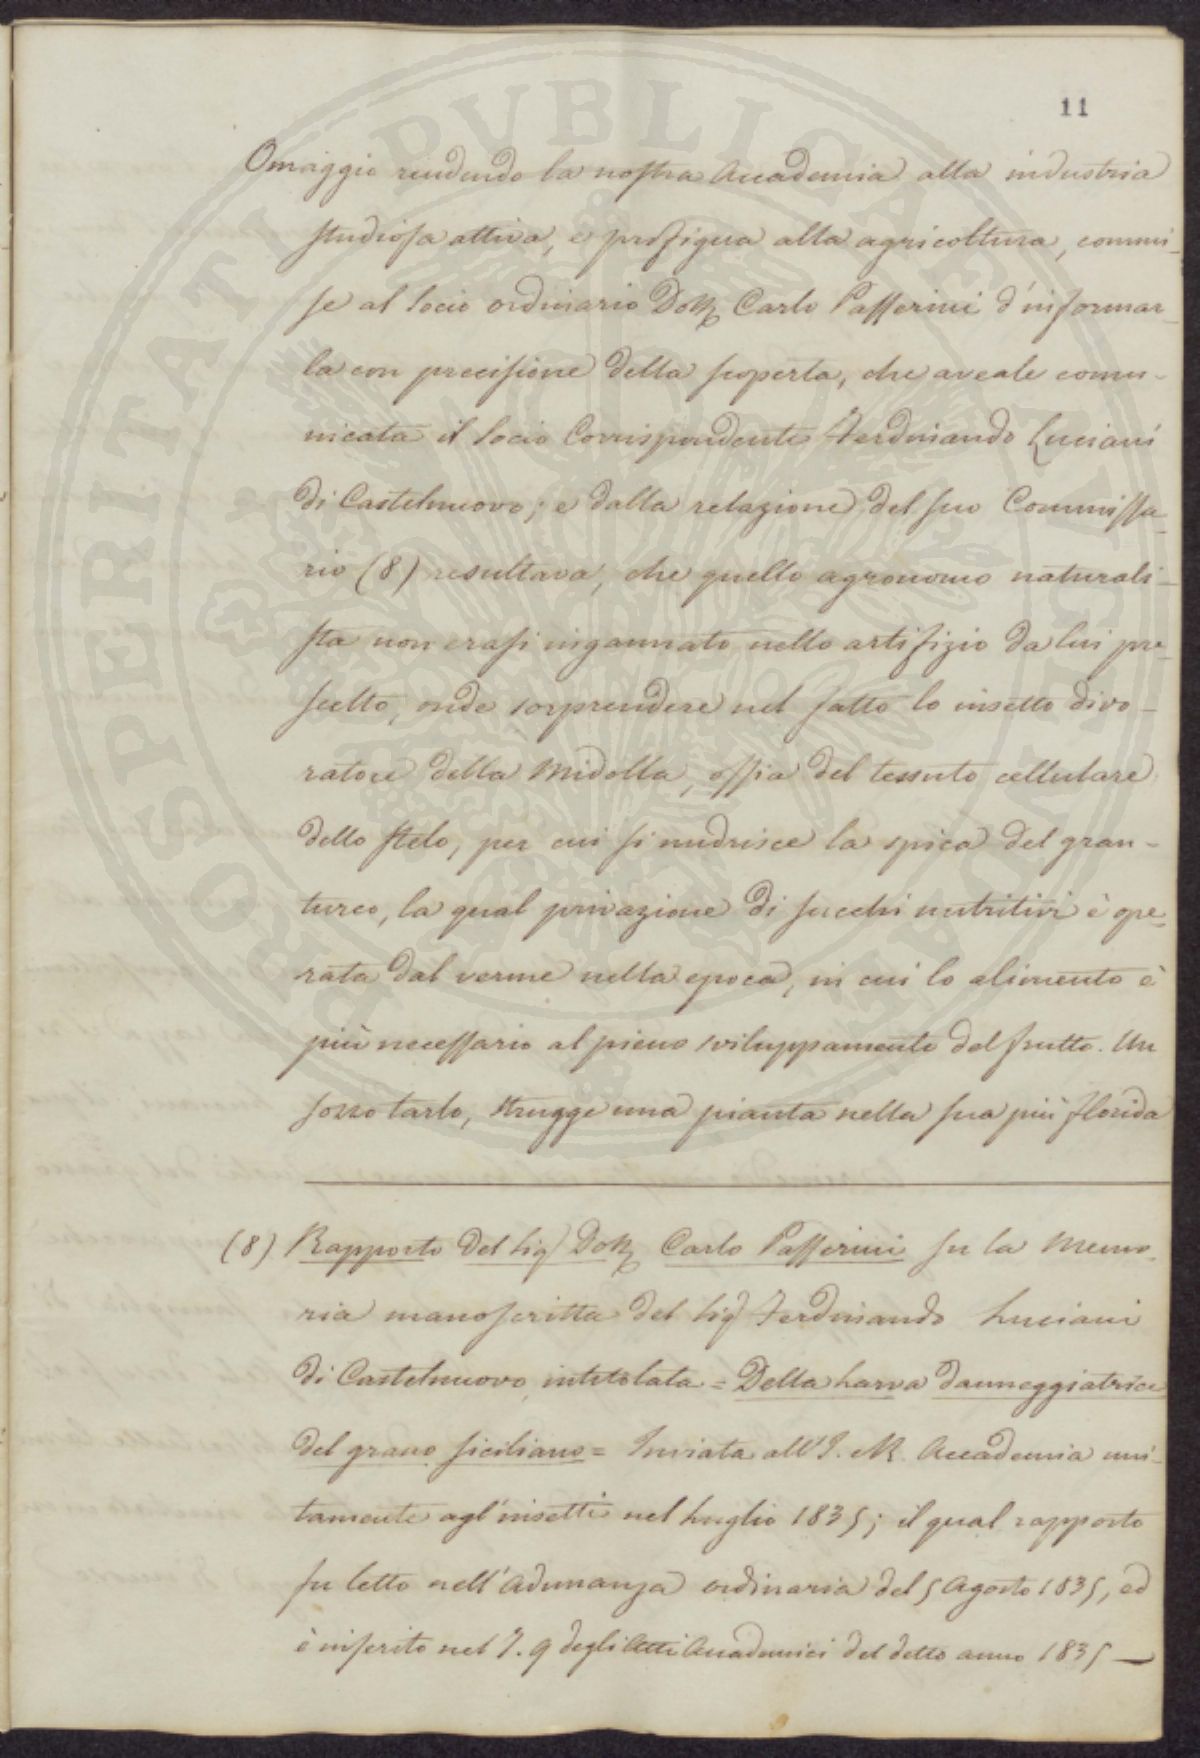 11
Omaggio rendendo la nostra Accademia alla industria
studiosa attiva, e proficua alla agricoltura, commi-
se al Socio ordinario Dott. Carlo Passerini d'informar-
la con precisione della scoperta, che aveale comu-
nicata il Socio Corrispondente Ferdinando Luciani
di Castelnuovo; e dalla relazione del suo Commissa-
rio (8) resultava, che quello agronomo naturali-
sta non erasi ingannato nello artifizio da lui pre-
scelto, onde sorprendere nel fatto lo insetto divo-
ratore della Midolla, ossia del tessuto cellulare
dello stelo, per cui si nudrisce la spica del gran-
turco, la qual privazione di succhi nutritivi è ope-
rata dal verme nella epoca, in cui lo alimento è
più necessario al pieno sviluppamento del frutto. Un
sozzo tarlo, strugge una pianta nella sua più florida
(8) Rapporto del Sig.r Dott. Carlo Passerini su la Memo-
ria manoscritta del Sig.r Ferdinando Luciani
di Castelnuovo intitolata = Della Larva danneggiatrice
del grano siciliano = Inviata all'I. e R. Accademia uni-
tamente agl'insetti nel Luglio 1835; il qual rapporto
fu letto nell'Adunanza ordinaria del 5 Agosto 1835, ed
è inserito nel T. 9 degli Atti Accademici del detto anno 1835 —
PROSPERITATI PVBLICAE AVGENDAE